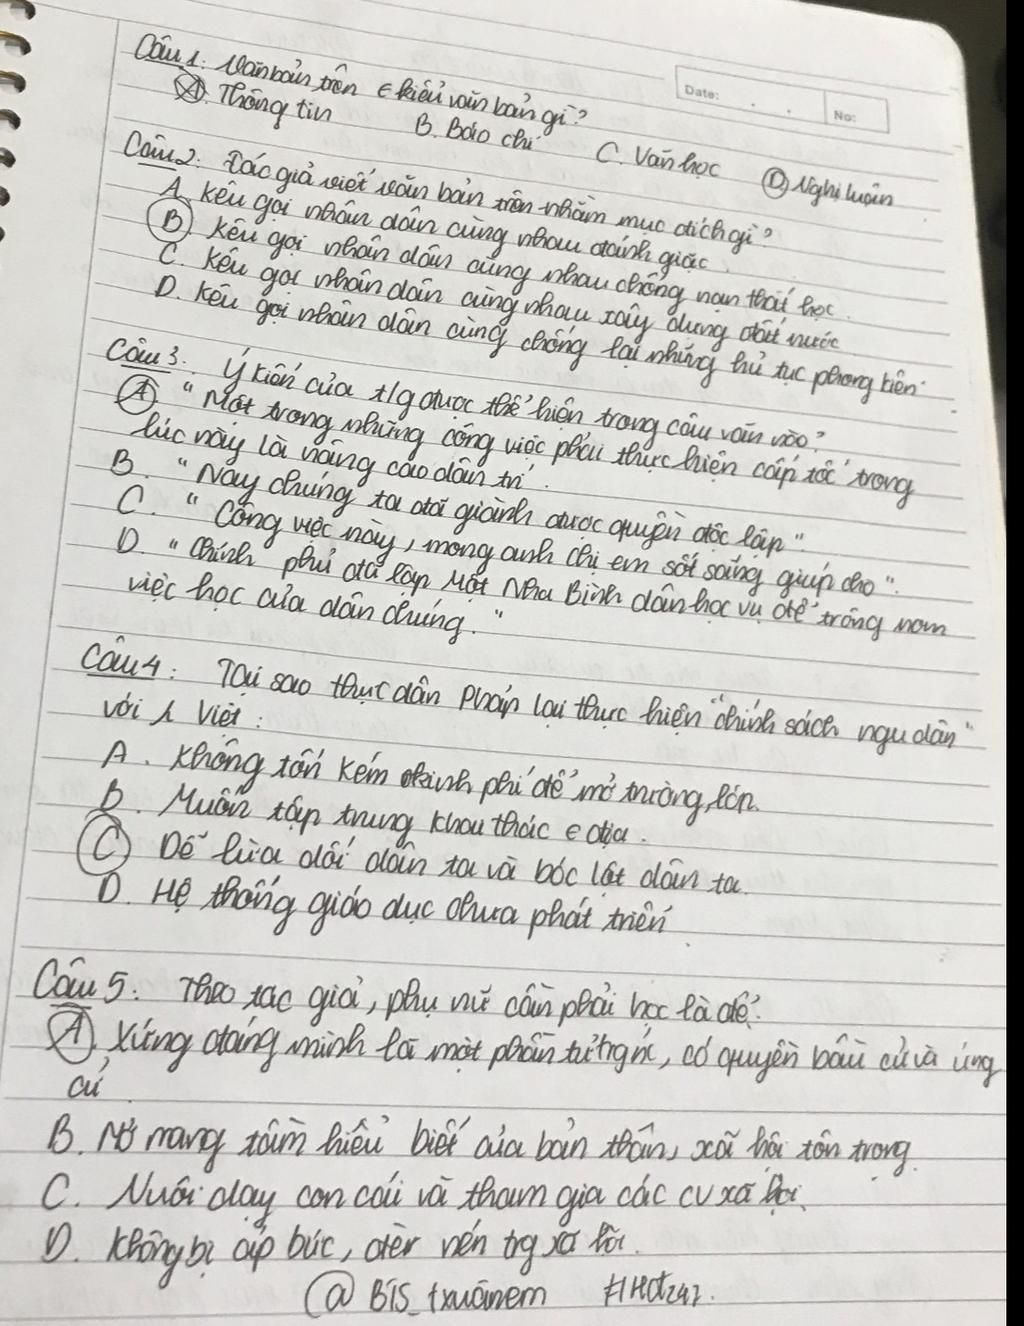 Date: No:
Câu 1: Văn bản trên ∈ kiểu văn bản gì?
A. Thông tin B. Báo chí C. Văn học D. Nghị luận
Câu 2: Tác giả viết văn bản trên nhằm mục đích gì?
A. Kêu gọi nhân dân cùng nhau đánh giặc.
B. Kêu gọi nhân dân cùng nhau chống nạn thất học.
C. Kêu gọi nhân dân cùng nhau xây dựng đất nước
D. Kêu gọi nhân dân cùng chống lại những hủ tục phong kiến.
Câu 3: Ý kiến của t/g được thể hiện trong câu văn nào?
A "Một trong những công việc phải thực hiện cấp tốc trong
lúc này là nâng cao dân trí.
B. "Nay chúng ta đã giành được quyền độc lập".
C. "Công việc này, mong anh chị em sốt sắng giúp cho".
D. "Chính phủ đã lập Một Nha Bình dân học vụ để trông nom
việc học của dân chúng."
Câu 4: Tại sao thực dân Pháp lại thực hiện "chính sách ngu dân"
với Việt:
A. Không tốn kém kinh phí để mở trường, lớp.
B. Muốn tập trung khai thác ∈ địa.
C Dễ lừa dối dân ta và bóc lột dân ta.
D. Hệ thống giáo dục chưa phát triển
Câu 5: Theo tác giả, phụ nữ cần phải học là để:
A. Xứng đáng mình là một phần tử trg nc, có quyền bầu cử và ứng
cử
B. Mở mang tầm hiểu biết của bản thân, xã hội tôn trọng.
C. Nuôi dạy con cái và tham gia các cv xã hội.
D. Không bị áp bức, đèr nén trg xã hội.
@ BTS_txuânem #Hd247.